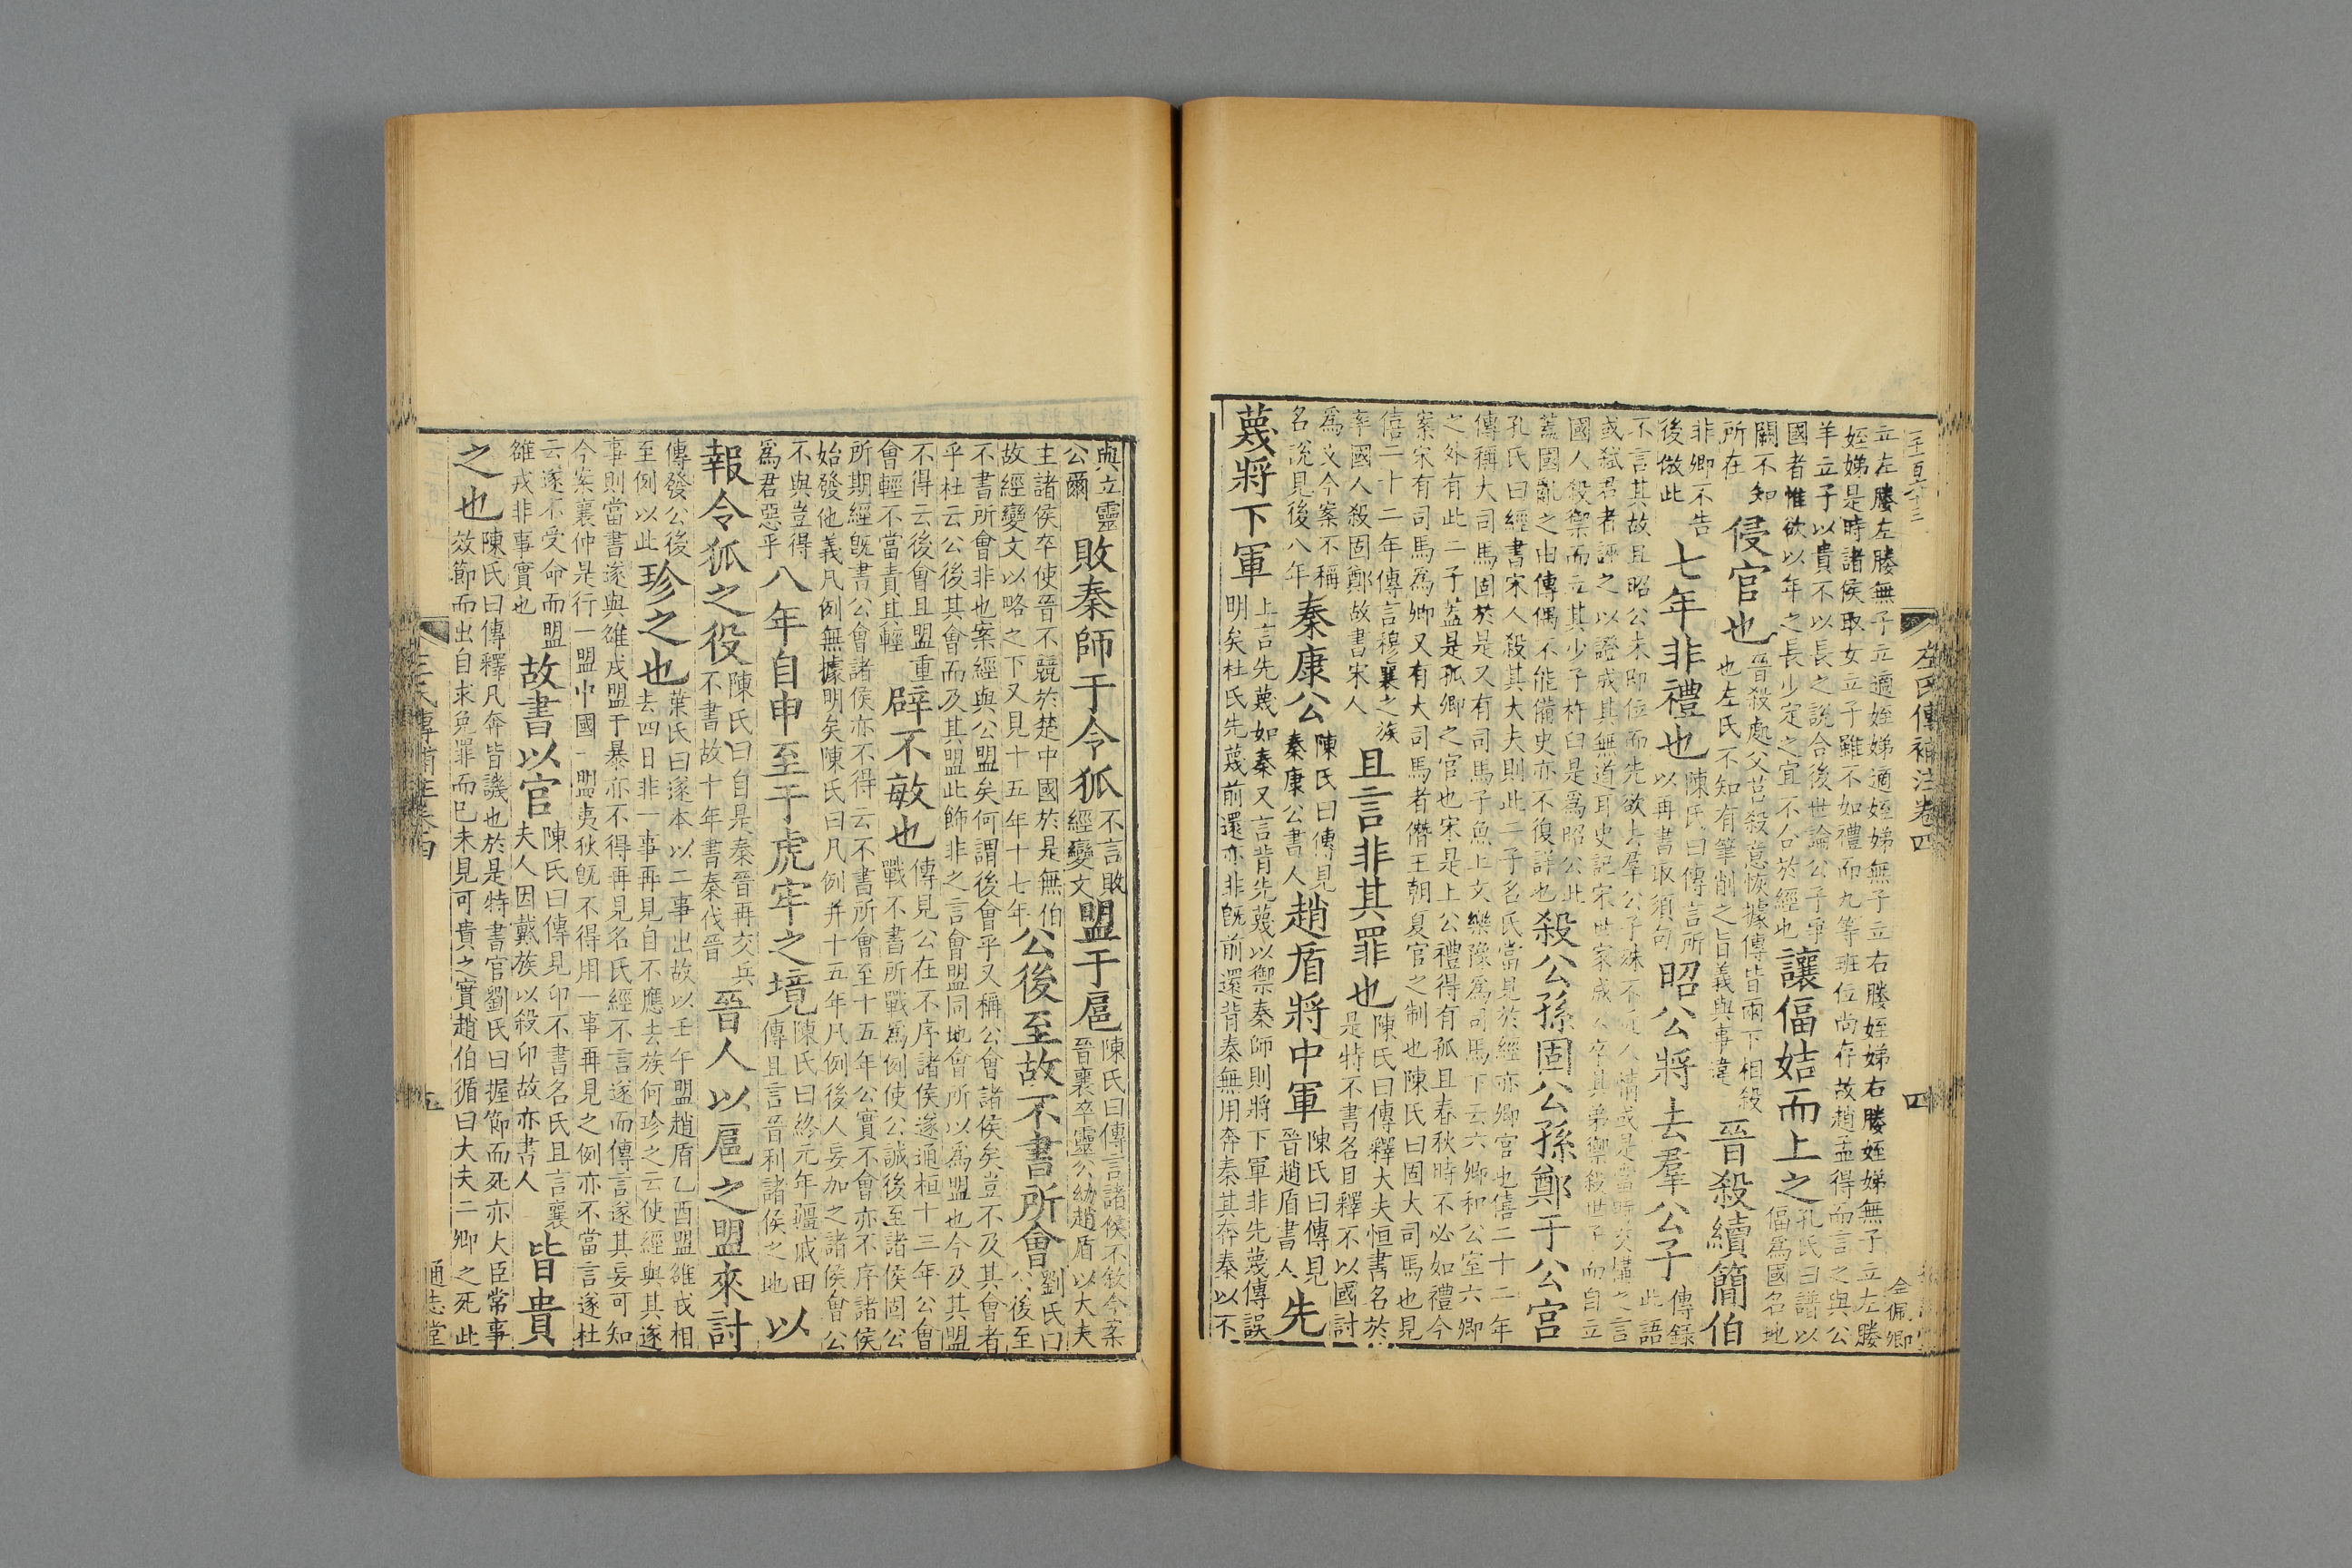 立左媵左媵無子立適姪娣適姪娣無子立右媵姪娣右媵姪娣無子立左媵
姪娣是時諸侯取女立子雖不如禮而九等班位尚存故趙孟得而言之與公
羊立子以貴不以長之說合後世論公子爭
國者惟欲以年之長少定之宜不合於經也
讓偪姞而上之
孔氏曰譜以
偪為國名地
闕不知
所在
侵官也
晉殺處父莒殺意恢據傳皆兩下相殺
也左氏不知有筆削之旨義與事違
晉殺續簡伯
非卿不告
後倣此
七年非禮也
陳氏曰傳言所
以再書取須句
昭公將去羣公子
傳錄
此語
不言其故且昭公未即位而先欲去羣公子殊不近人情或是當時交構之言
或弑君者誣之以證成其無道耳史記宋世家成公卒其弟禦殺世子而自立
國人殺禦而立其少子杵臼是爲昭公此
蓋國亂之由傳偶不能備史亦不復詳也
殺公孫固公孫鄭于公宮
孔氏曰經書宋人殺其大夫則此二子名氏當見於經亦卿官也僖二十二年
傳稱大司馬固於是又有司馬子魚上文樂豫爲司馬下云六卿和公室六卿
之外有此二子蓋是孤卿之官也宋是上公禮得有孤且春秋時不必如禮今
案宋有司馬爲卿又有大司馬者僭王朝夏官之制也陳氏曰固大司馬也見
僖二十二年傳言穆襄之族
率國人殺固鄭故書宋人
且言非其罪也
陳氏曰傳釋大夫恒書名於
是特不書名目釋不以國討
爲文今案不稱
名說見後八年
秦康公
陳氏曰傳見
秦康公書人
趙盾將中軍
陳氏曰傳見
晉趙盾書人
先
蔑將下軍
上言先蔑如秦又言背先蔑以禦秦師則將下軍非先蔑傳誤
明矣杜氏先蔑前還亦非旣前還背秦無用奔秦其奔秦以不
左氏傳補注卷四
四
金佩卿
與立靈
公爾
敗秦師于令狐
不言敗
經變文
盟于扈
陳氏曰傳言諸侯不敘今案
晉襄卒靈公幼趙盾以大夫
主諸侯卒使晉不競於楚中國於是無伯
故經變文以略之下又見十五年十七年
公後至故不書所會
劉氏曰
公後至
不書所會非也案經與公盟矣何謂後會乎又稱公會諸侯矣豈不及其會者
乎杜云公後其會而及其盟此飾非之言會盟同地會所以爲盟也今及其盟
不得云後會且盟重
會輕不當責其輕
辟不敏也
傳見公在不序諸侯遂通桓十三年公會
戰不書所戰爲例使公誠後至諸侯固公
所期經旣書公會諸侯亦不得云不書所會至十五年公實不會亦不序諸侯
始發他義凡例無據明矣陳氏曰凡例并十五年凡例後人妄加之諸侯會公
不與豈得
爲君惡乎
八年自申至于虎牢之境
陳氏曰終元年疆戚田
傳且言晉利諸侯之地
以
報令狐之役
陳氏曰自是秦晉再交兵
不書故十年書秦伐晉
晉人以扈之盟來討
傳發公後
至例以此
珍之也
葉氏曰遂本以二事出故以壬午盟趙盾乙酉盟雒戎相
去四日非一事再見自不應去族何珍之云使經與其遂
事則當書遂與雒戎盟于暴亦不得再見名氏經不言遂而傳言遂其妄可知
今案襄仲是行一盟中國一盟夷狄旣不得用一事再見之例亦不當言遂杜
云遂不受命而盟
雒戎非事實也
故書以官
陳氏曰傳見卬不書名氏且言襄
夫人因戴族以殺卬故亦書人
皆貴
之也
陳氏曰傳釋凡奔皆譏也於是特書官劉氏曰握節而死亦大臣常事
效節而出自求免罪而已未見可貴之實趙伯循曰大夫二卿之死此
五
通志堂